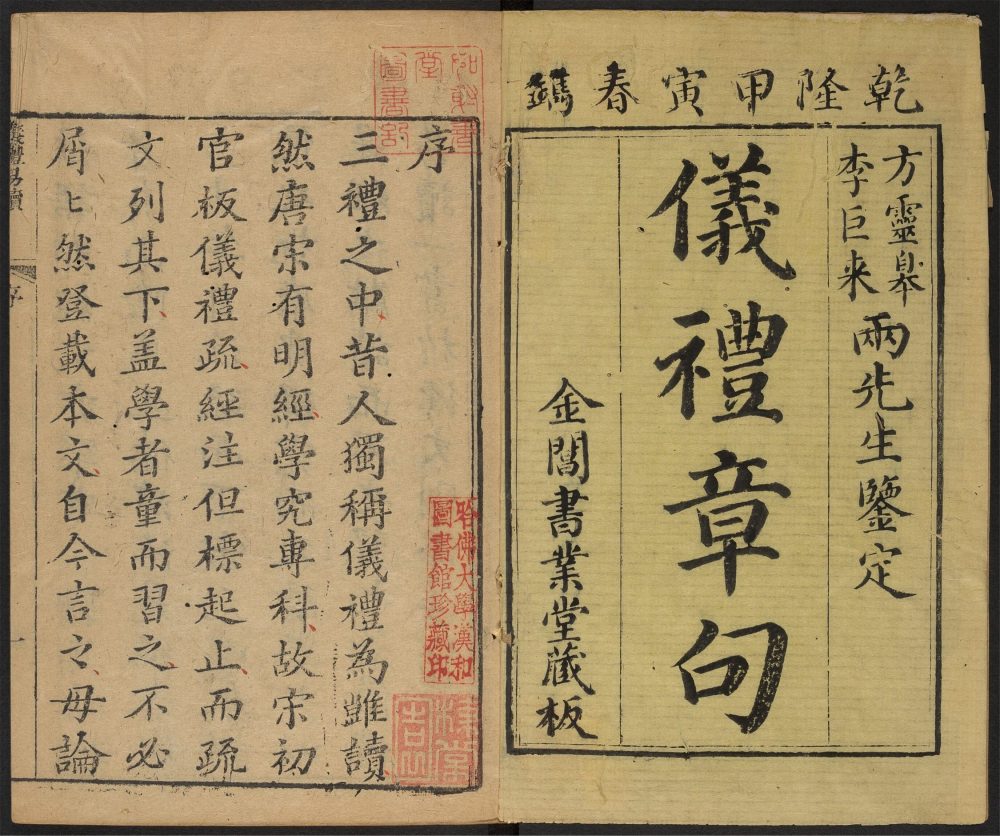 乾隆甲寅春鐫
方靈皋
李巨来
兩先生鑒定
儀禮章句
金閶書業堂藏板
序
三禮之中昔人獨稱儀禮為雖讀
然唐宋有明經學究專科故宋初
官板儀禮疏經注但標起止而疏
文列其下盖學者童而習之不必
屑〻然登載本文自今言之毋論
哈佛大學漢和
圖書館珍藏印
儀禮易讀
序
一